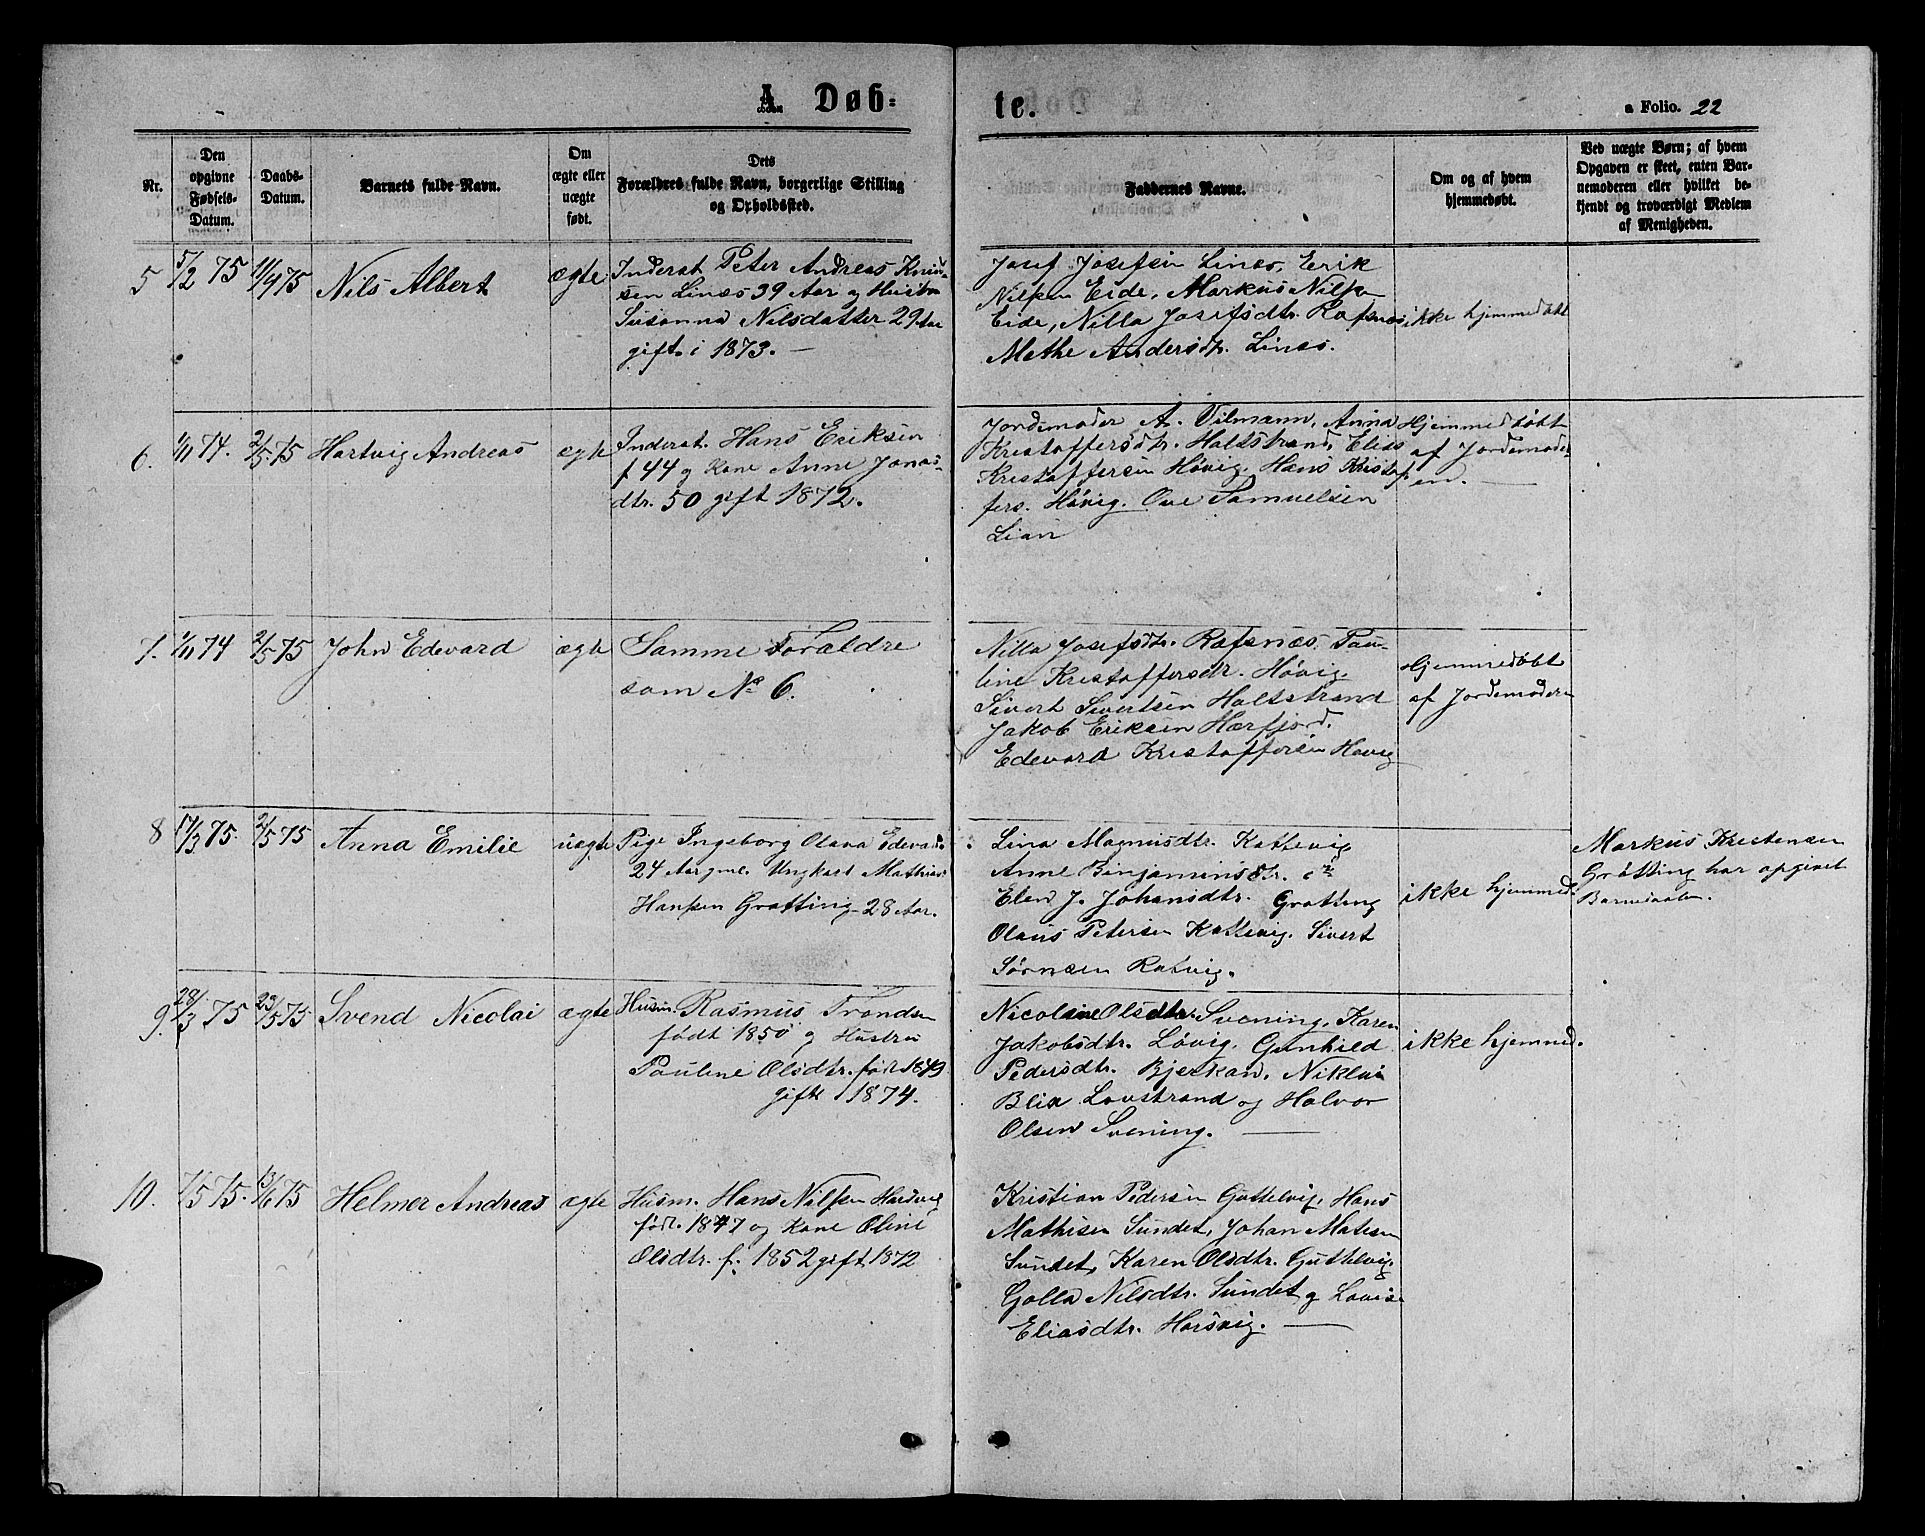 A. Døb-
te.
a Folio. 22
Nr.
Den
opgivne
Fødsels-
Datum.
Daabs-
Datum.
Barnets fulde Navn.
Om
ægte eller
uægte
født.
Dets
Forældres fulde Navn, borgerlige Stilling
og Opholdssted.
Faddernes Navne.
Om og af hvem
hjemmedøbt.
Ved uægte Børn; af hvem
Opgaven er skeet, enten Bar-
nemoderen eller hvilket be-
kjendt og troværdigt Medlem
af Menigheden.
5
5/2 75
11/4 75
Nils Albert
ægte
Inderst Peter Andreas
sen Linæs 39 Aar og Hustru
Susanna Nilsdatter 29 Aar
gift. i 1873. —
Josef Josefsen Linæs, Erik
Nilsen Eide, Markus Nilsen
Eide, Nilla Josefsdtr. Rafsnæs
Methe Andersdtr. Linæs.
ikke hjemmedøbt
6.
1/11 74.
2/5 75
Hartvig Andreas
ægte
Inderst. Hans Eriksen
f 44 og Kone Anne Jonas-
dtr. 50 gift 1872.
Jordemoder A. Tilmann, Anna
Kristoffersdtr. Haltstrand, Elias
Kristoffersen Høvig, Hans Kristof-
fers. Høvig. Ove Samuelsen
Lian
Hjemmedøbt
af Jordemoder
en. —
7.
1/11 74
2/5 75
John Edevard
ægte
Samme Forældre
som No 6.
Nilla Josefsdtr. Rafsnæs, Pau-
line Kristoffersdtr. Høvig.
Sivert Sivertsen Haltstrand
Jakob Eriksen Hærfjord.
Edevard Kristoffersen Høvig
Hjemmedøbt
af Jordemoderen
8
17/3 75.
2/5 75
Anna Emilie
uægte
Pige Ingeborg Olava Edevards.
24 Aar gml. Ungkarl Mathias
Hansen Grøtting 28 Aar.
Lina Magnusdtr. Kattevig
Anne Binjaminsdtr.
Elen J. Johansdtr. Grøtting
Olaus Petersen Kattevig. Sivert
Sørnsen Ratvig.
ikke hjemmed.
Markus Kristensen
Grøtting har opgivet
Barnedaaben.
9.
28/3 75
23/5 75
Svend Nicolai
ægte
Husm. Rasmus Trondsen
født 1850 og Hustru
Pauline Olsdtr. født 1849
gifte i 1874.
Nicoline Olsdtr. Svening, Karen
Jakobsdtr. Løvig, Gunhild
Pedersdtr. Bjerkan, Niklai
Blix Lovstrand og Halvor
Olsen Svening. —
ikke hjemmed.
10.
7/5 75.
13/6 75
Helmer Andreas
ægte
Husm. Hans Nilsen
født. 1847 og Kone Oline
Olsdtr. f. 1852 gift 1872
Kristian Pedersen Guttelvig, Hans
Mathisen Sundet, Johan Matisen
Sundet, Karen Olsdtr. Guttelvig.
Golla Nilsdtr. Sundet og Lovise
Eliasdtr. Harsvig. —